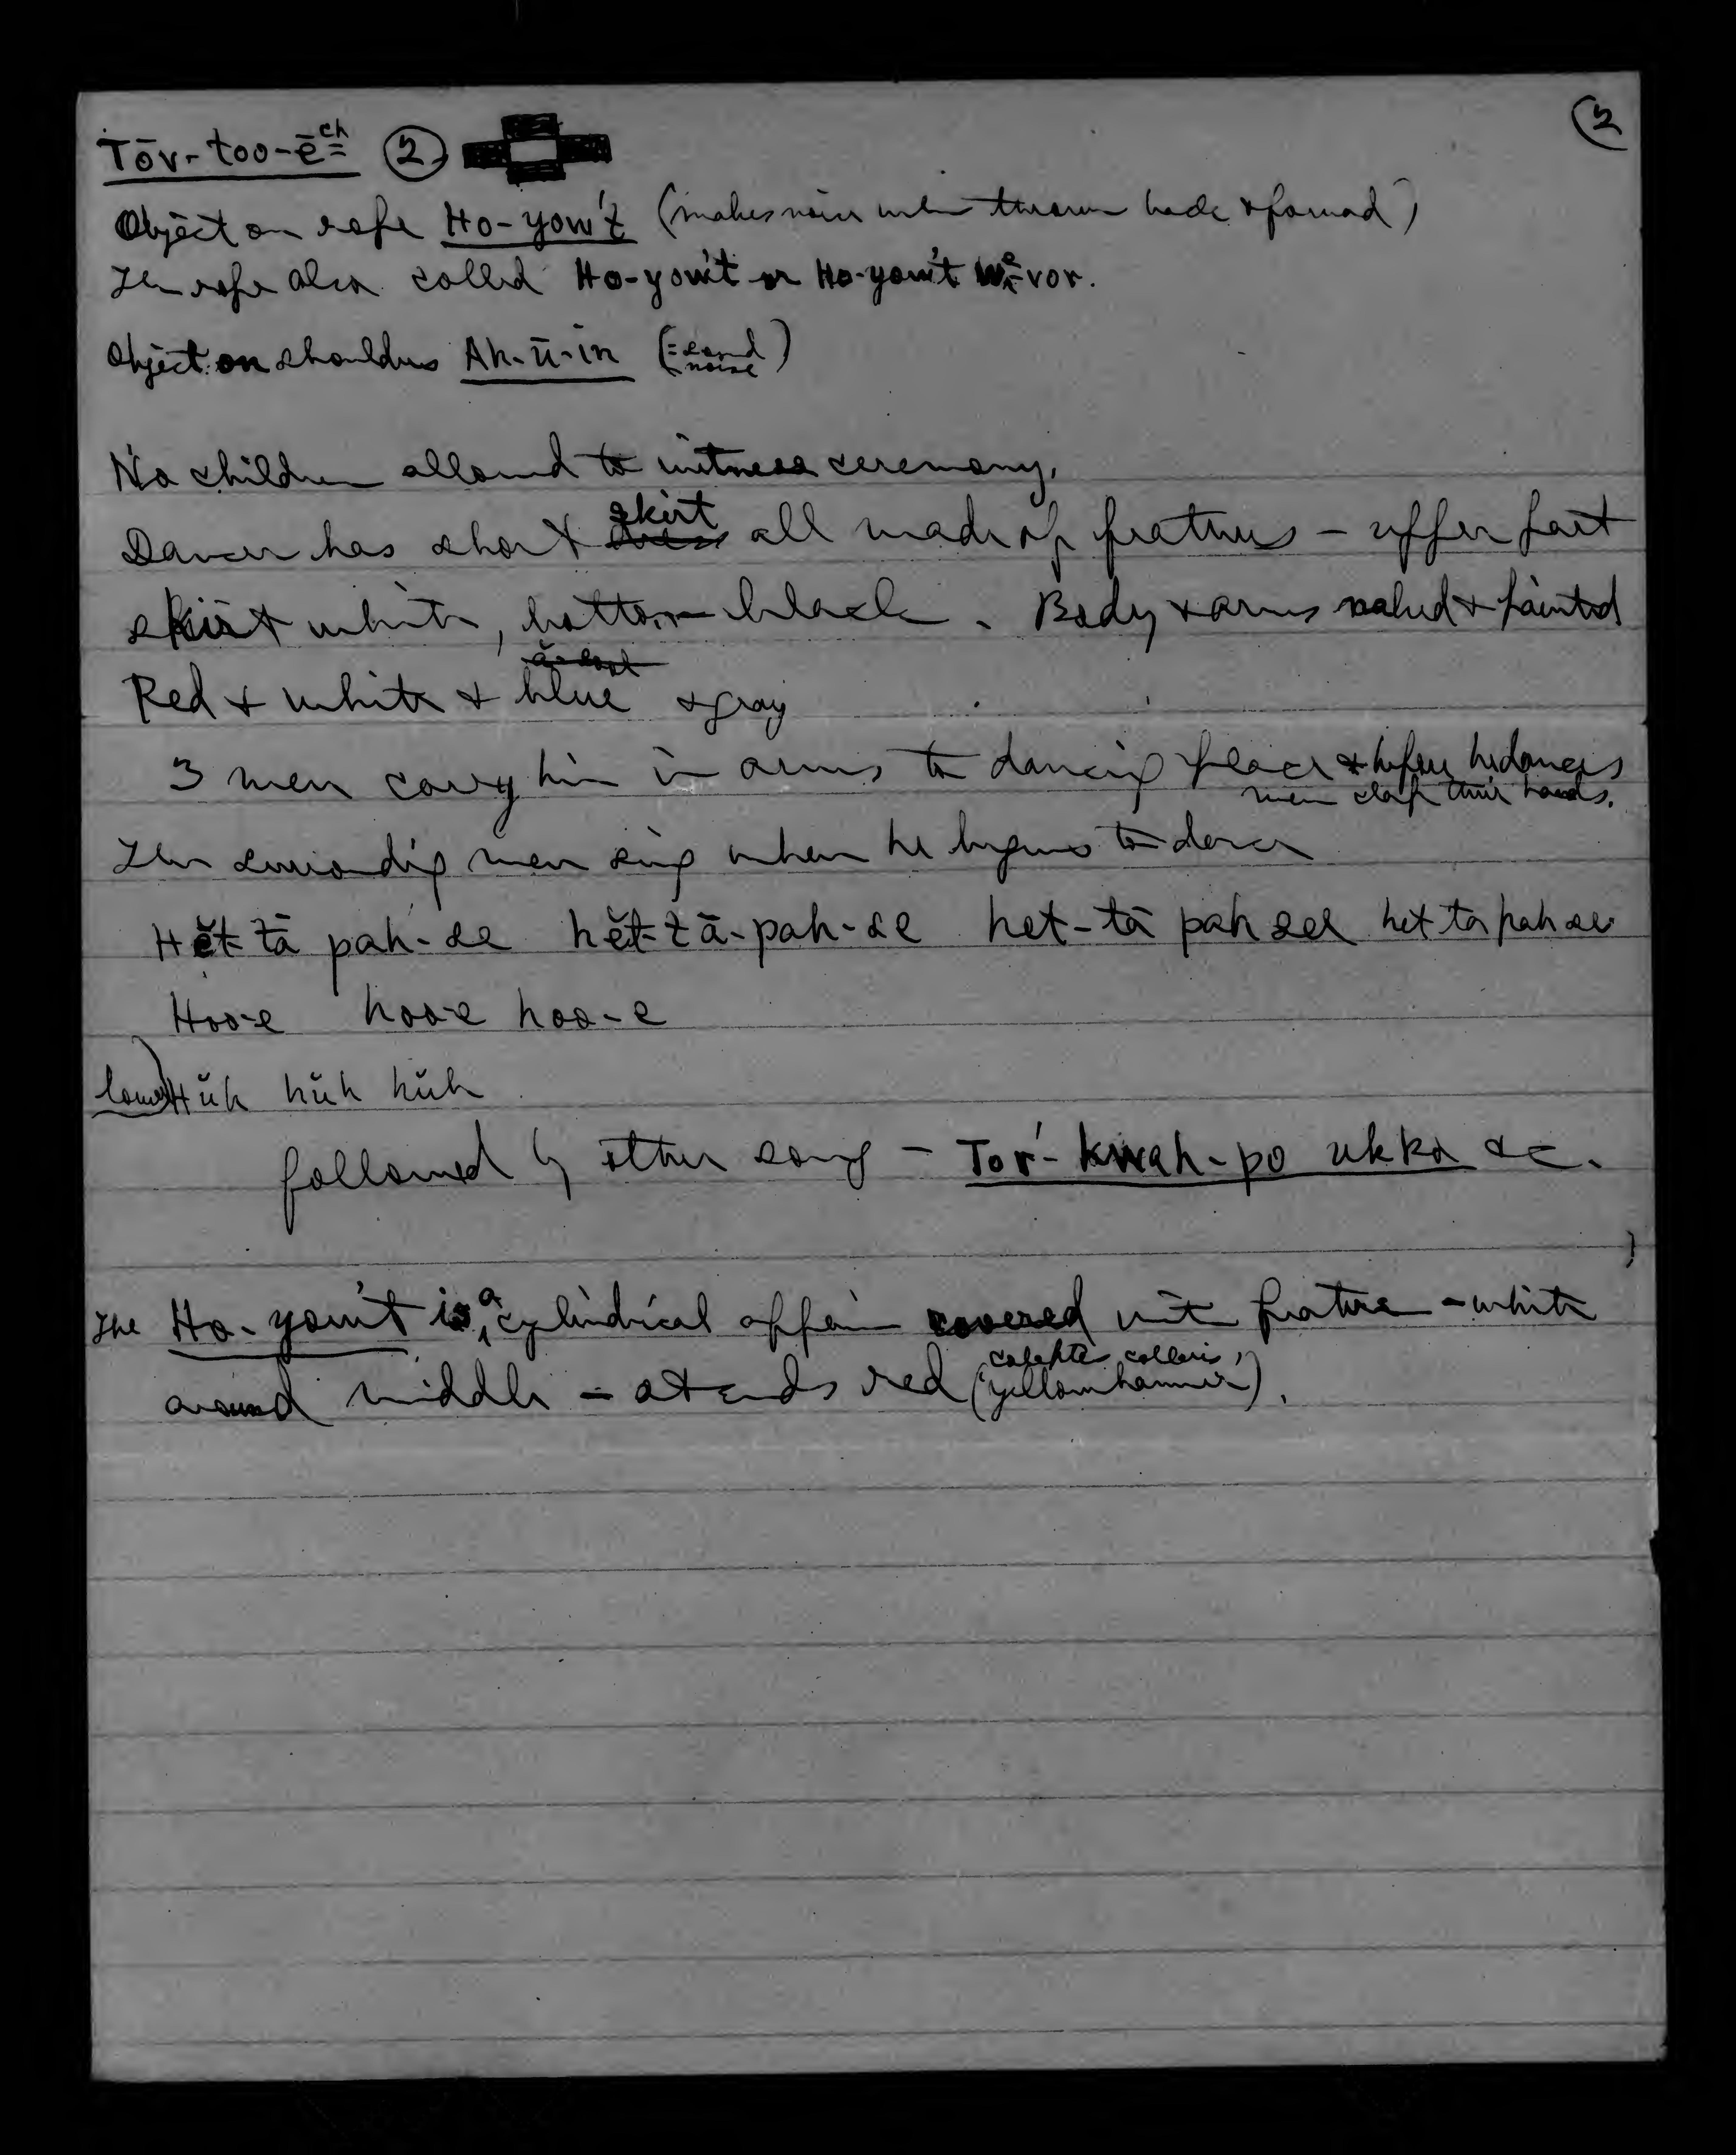 Tōv-too-ēch ② ②
Object on rope Ho-yow't (makes noise when thrown back & forward)
The rope also called Ho-yow't or Ho-yow't -vor.
Object on shoulders Ah-ū-in (= sound noise)
No children allowed to witness ceremony.
Dancer has short skirt all made of feathers – upper part
skirt white, bottom black. Body & arms naked & painted
Red & white & blue & gray
3 men carry him in arms to dancing place & before he dances
men clap their hands.
The surrounding men sing when he begins to dance
Hĕt tā pah-se hĕt-tā-pah-se het-tā pah see het ta pah se
Hoo-e hoo-e hoo-e
lower) Hŭh hŭh hŭh
followed by other song – Tor'-kwah-po ukka &c.
The Ho-yow't is a cylindrical affair covered with feathers – white
around middle – at ends red (colaptes collaris,
yellowhammer).